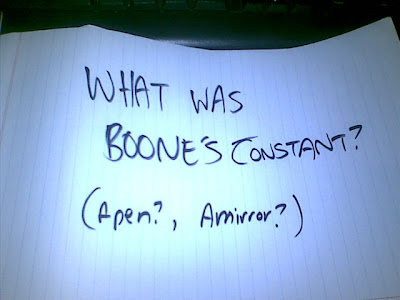 WHAT WAS
BOONE'S CONSTANT?
(Apen?, Amirror?)